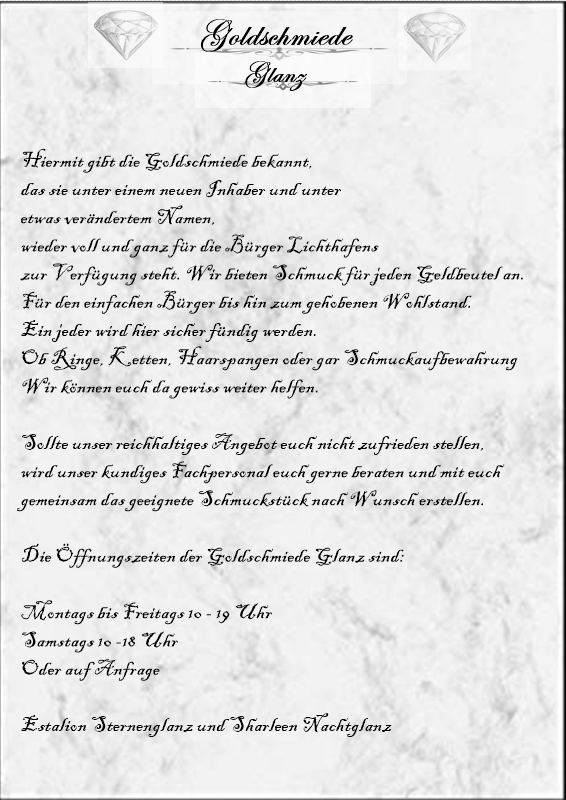 Goldschmiede
Glanz
Hiermit gibt die Goldschmiede bekannt,
das sie unter einem neuen Inhaber und unter
etwas verändertem Namen,
wieder voll und ganz für die Bürger Lichthafens
zur Verfügung steht. Wir bieten Schmuck für jeden Geldbeutel an.
Für den einfachen Bürger bis hin zum gehobenen Wohlstand.
Ein jeder wird hier sicher fündig werden.
Ob Ringe, Ketten, Haarspangen oder gar Schmuckaufbewahrung
Wir können euch da gewiss weiter helfen.
Sollte unser reichhaltiges Angebot euch nicht zufrieden stellen,
wird unser kundiges Fachpersonal euch gerne beraten und mit euch
gemeinsam das geeignete Schmuckstück nach Wunsch erstellen.
Die Öffnungszeiten der Goldschmiede Glanz sind:
Montags bis Freitags 10 - 19 Uhr
Samstags 10 -18 Uhr
Oder auf Anfrage
Estalion Sternenglanz und Sharleen Nachtglanz